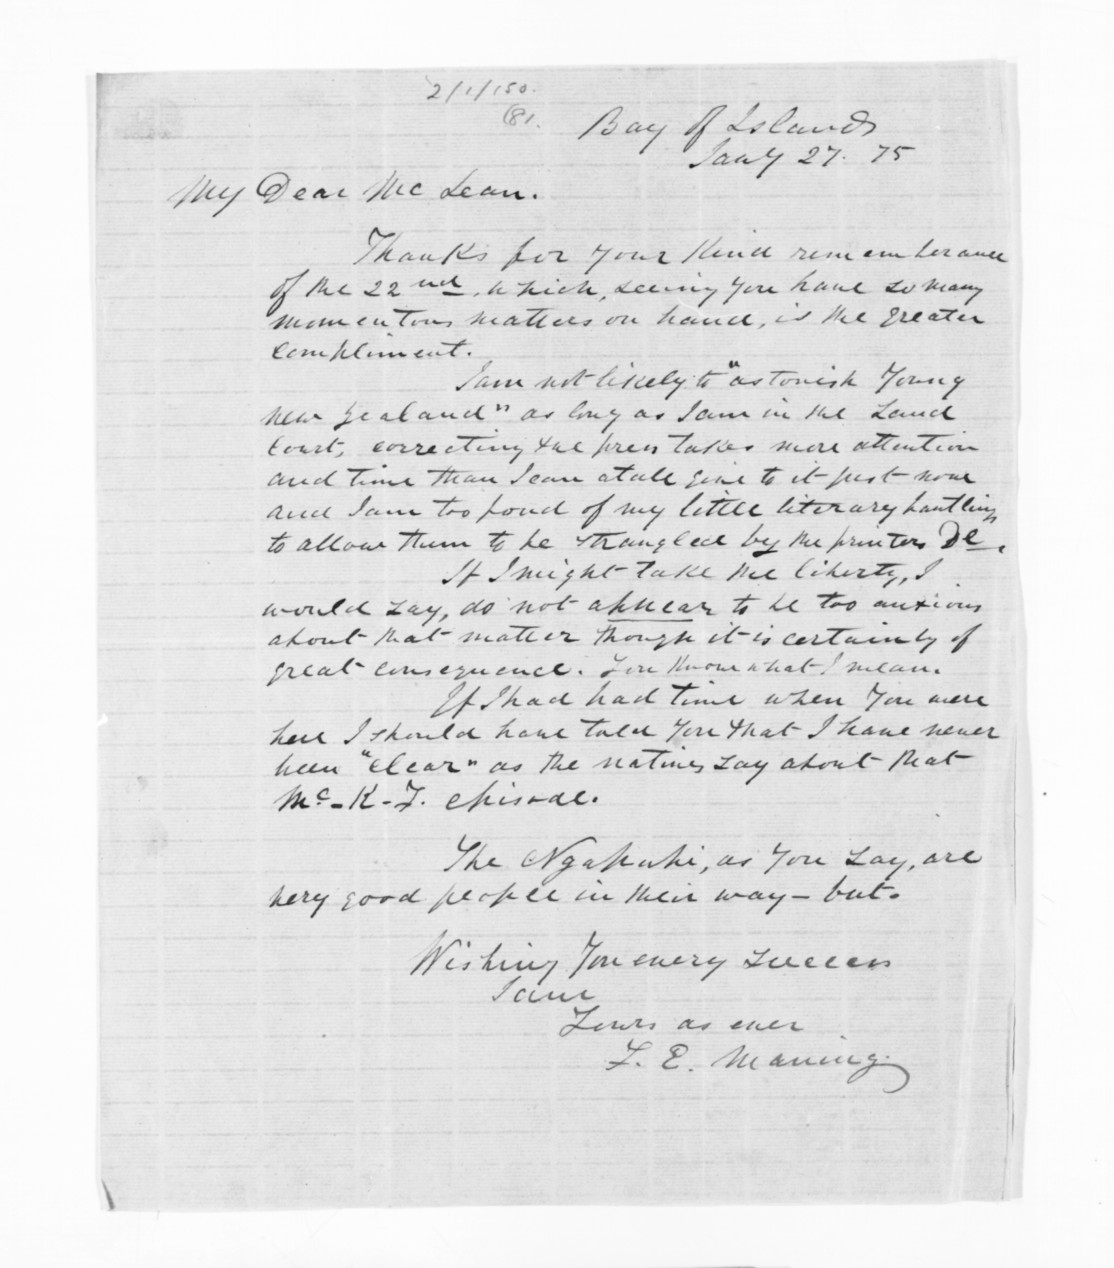 2/1/150.
(81.
Bay of Islands
Jany 27. 75
My Dear McLean.
Thanks for your kind rememberance
of the 22nd. which, seeing you have so many
momentous matters on hand, is the greater
compliment.
I am not likely to "astonish Young
new Zealand" as long as I am in the Land
Court, correcting the press takes more attention
and time than I can atall give to it just now
and I am too fond of my little literary bantlings
to allow them to be strangled by the printers De.
If I might take the liberty, I
would say, do not appear to be too anxious
about that matter though it is certainly of
great consequence. You know what I mean.
If I had had time when you were
here I should have told you that I have never
been "clear" as the natives say about that
Mc-K-F. episode.
The Ngapuhi, as you say, are
very good people in their way – but.
Wishing you every success
I am
Yours as ever
F. E. Maning.